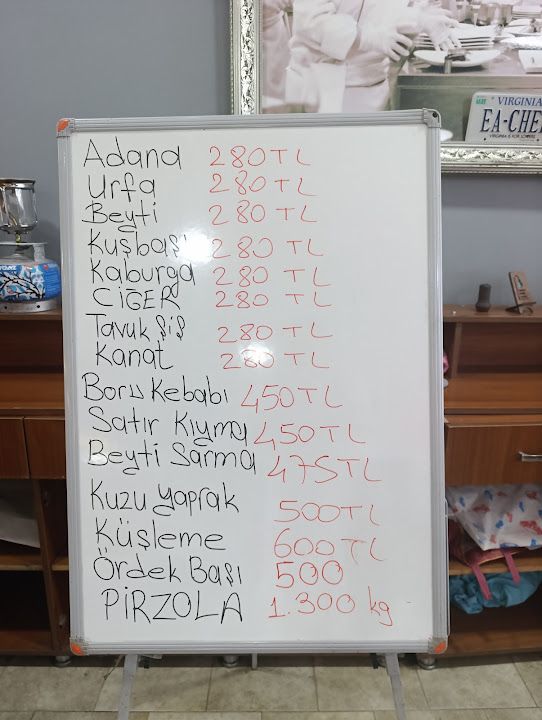 Adana 280 TL
Urfa 280 TL
Beyti 280 TL
Kuşbaşı 280 TL
Kaburga 280 TL
CİĞER 280 TL
Tavuk Şiş 280 TL
Kanat 280 TL
Kebabı 450 TL
Satır Kıyma 450 TL
Beyti Sarma 475 TL
Kuzu yaprak 500 TL
Küşleme 600 TL
Ördek Başı 500
PİRZOLA 1.300 kg
VIRGINIA
EA-CHE